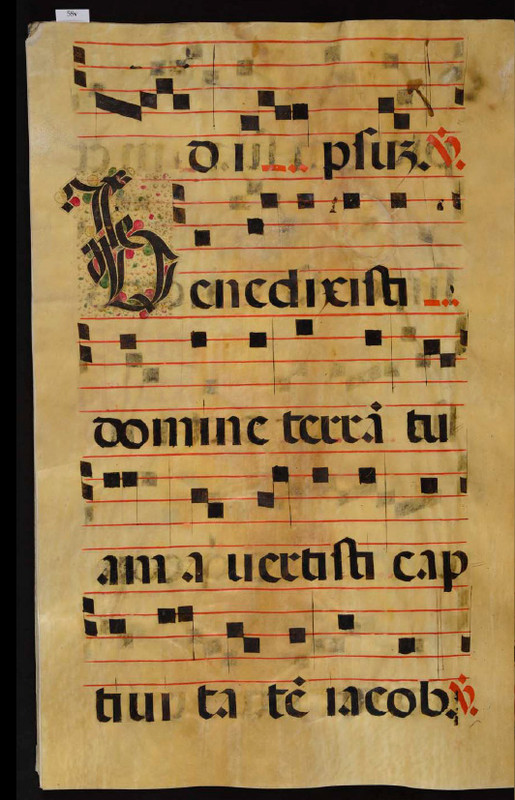 do ɪɪ... ipsius. ℣.
Benedixisti
domine terrā tu
am a uertisti cap
tiui ta tē iacob. ℣.